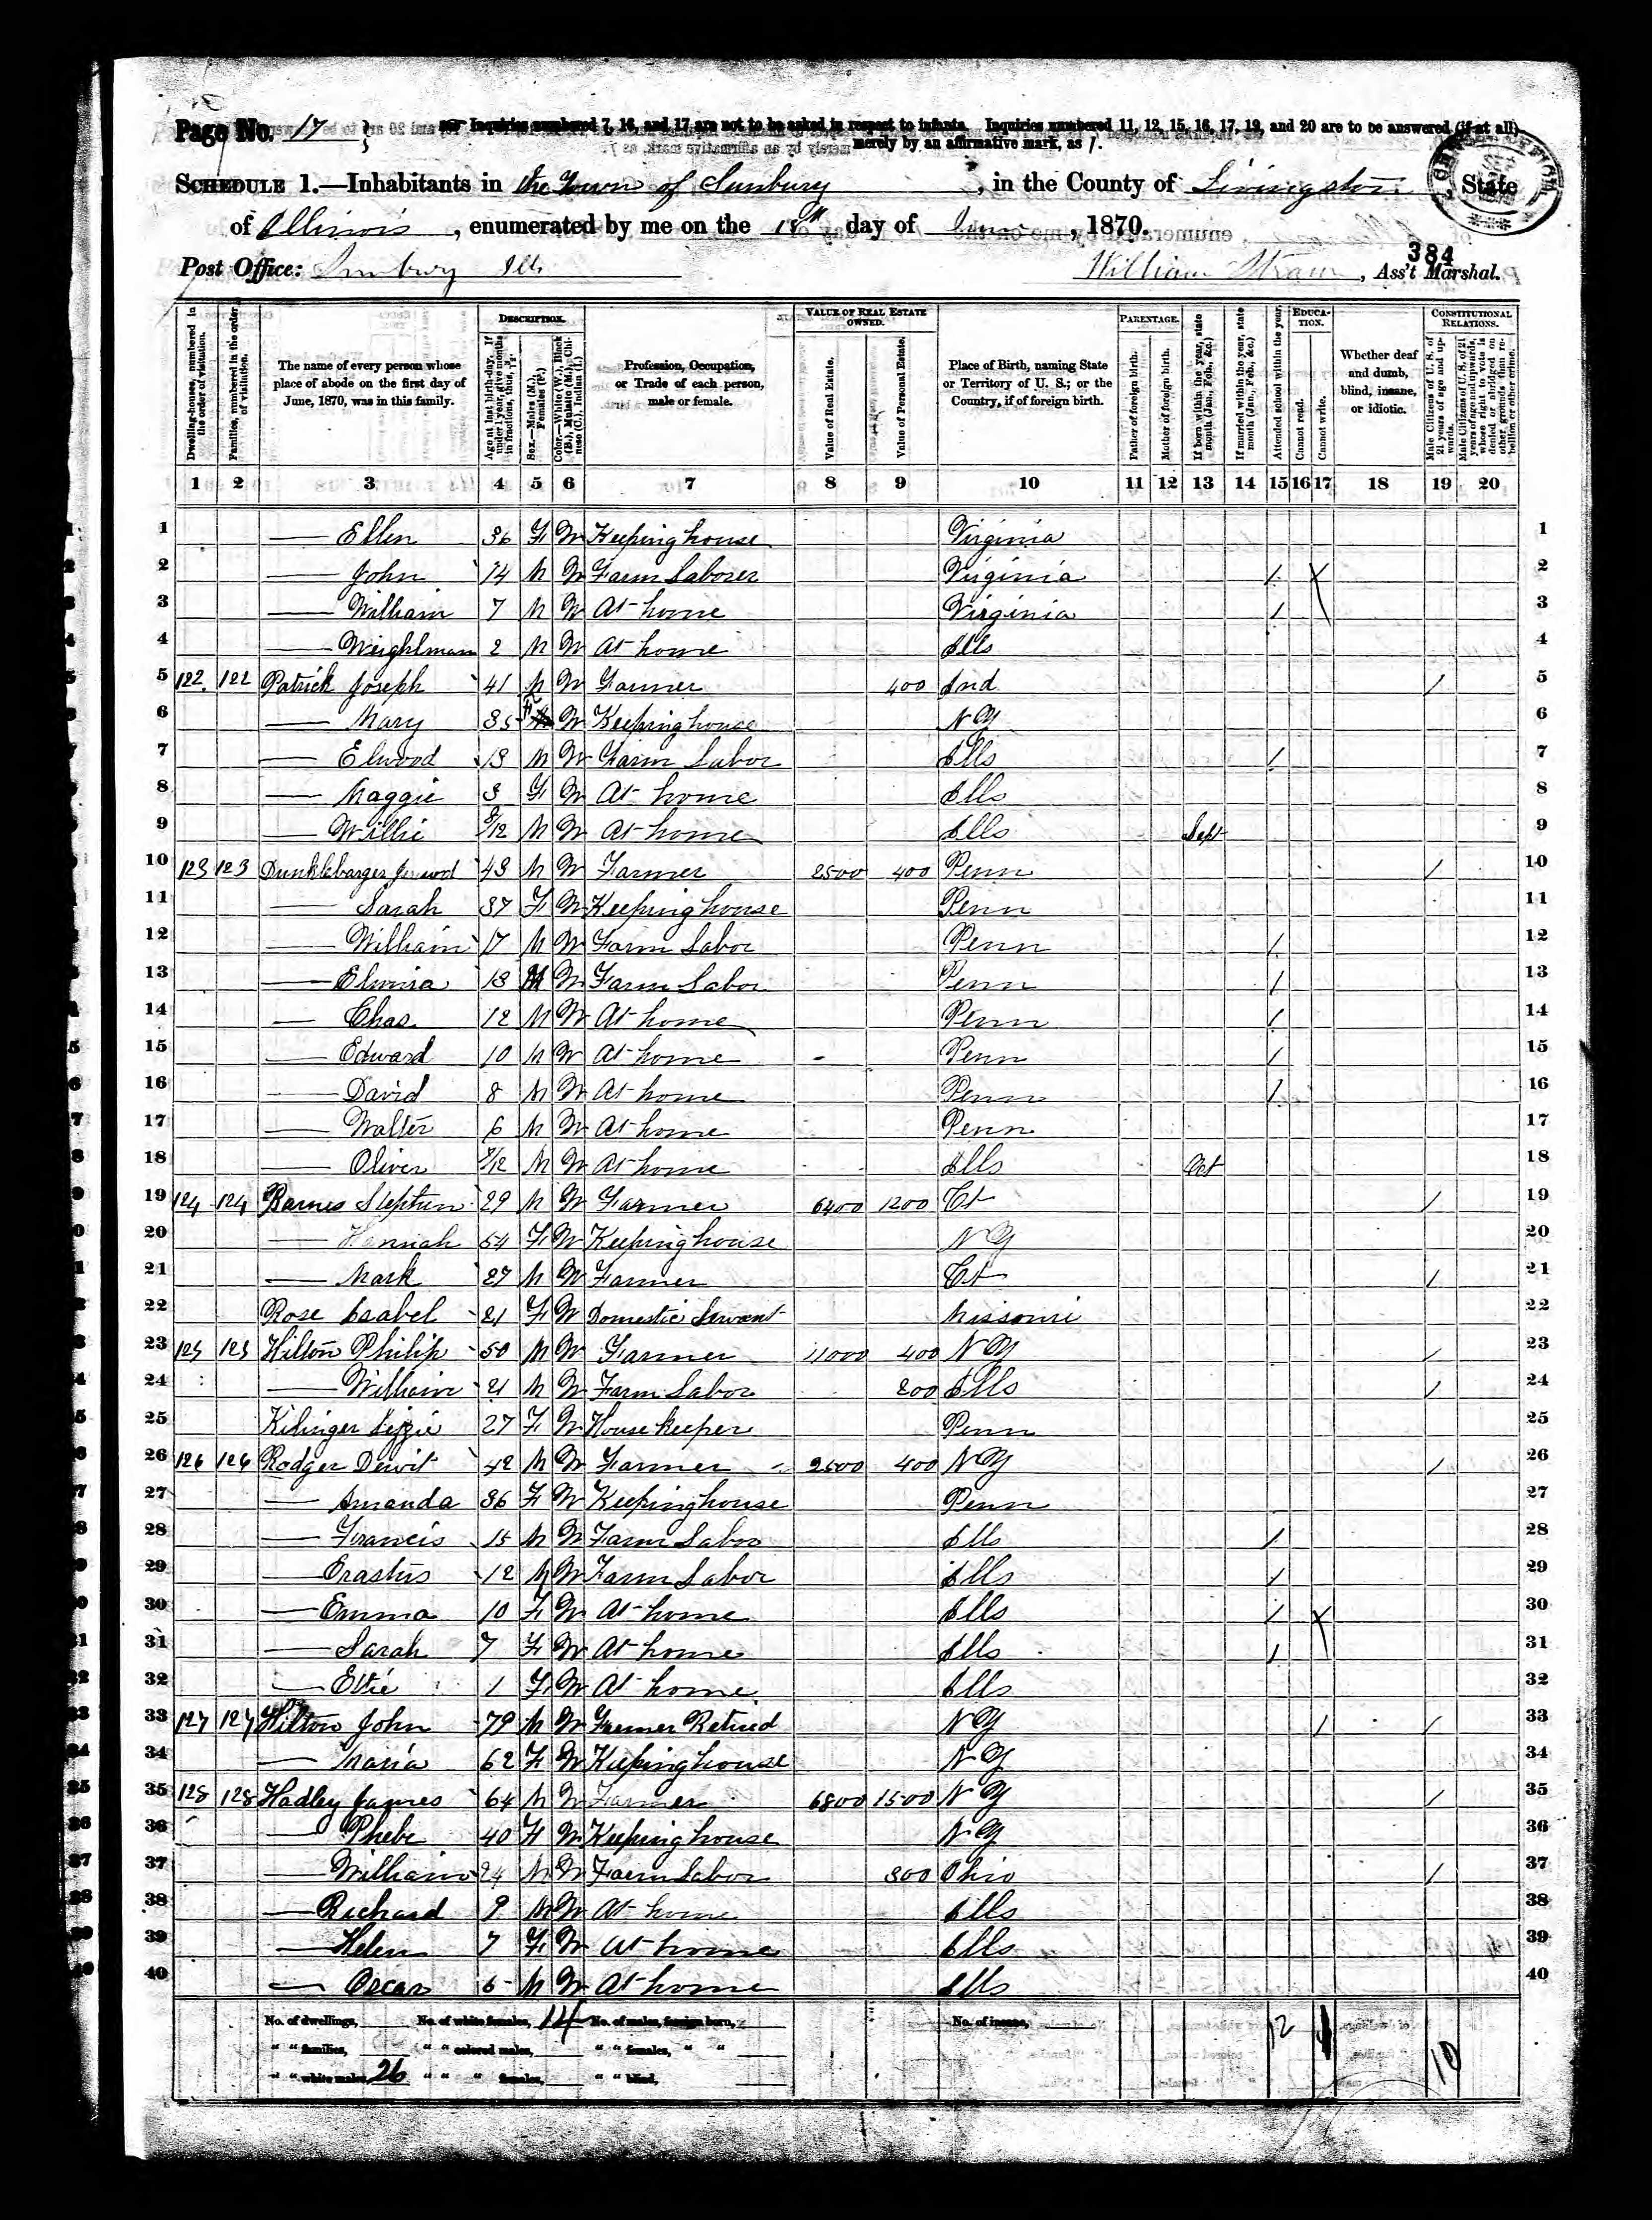 Page No. 17
Inquiries numbered 7, 16, and 17 are not to be asked in respect to infants. Inquiries numbered 11, 12, 15, 16, 17, 19, and 20 are to be answered (if at all)
merely by an affirmative mark, as /.
SCHEDULE 1.—Inhabitants in the Town of Sunbury, in the County of Livingston, State
of Illinois, enumerated by me on the 18th day of June, 1870.
384
Post Office: Sunbury Ills William Strawn, Ass't Marshal.
Dwelling-houses, numbered in the order of visitation.
Families, numbered in the order of visitation.
The name of every person whose place of abode on the first day of June, 1870, was in this family.
DESCRIPTION.
Age at last birth-day. If under 1 year, give months in fractions, thus, 3/12.
Sex.—Males (M.), Females (F.)
Color.—White (W.), Black (B.), Mulatto (M.), Chinese (C.), Indian (I.)
Profession, Occupation, or Trade of each person, male or female.
VALUE OF REAL ESTATE OWNED.
Value of Real Estate.
Value of Personal Estate.
Place of Birth, naming State or Territory of U. S.; or the Country, if of foreign birth.
PARENTAGE.
Father of foreign birth.
Mother of foreign birth.
If born within the year, state month (Jan., Feb., &c.)
If married within the year, state month (Jan., Feb., &c.)
Attended school within the year.
EDUCATION.
Cannot read.
Cannot write.
Whether deaf and dumb, blind, insane, or idiotic.
CONSTITUTIONAL RELATIONS.
Male Citizens of U. S. of 21 years of age and upwards.
Male Citizens of U. S. of 21 years of age and upwards, whose right to vote is denied or abridged on other grounds than rebellion or other crime.
1 2 3 4 5 6 7 8 9 10 11 12 13 14 15 16 17 18 19 20
1 — Ellen 36 F W Keeping house Virginia 1
2 — John 14 M W Farm Laborer Virginia / 2
3 — William 7 M W At home Virginia / 3
4 — Weightman 2 M W At home Ills 4
5 122 122 Patrick Joseph 41 M W Farmer 400 Ind / 5
6 — Mary 35 F W Keeping house NY 6
7 — Elwood 13 M W Farm Labor Ills / 7
8 — Maggie 3 F W At home Ills 8
9 — Willie 9/12 M W At home Ills Sept 9
10 123 123 Dunklebarger 43 M W Farmer 2500 400 Penn / 10
11 — Sarah 37 F W Keeping house Penn 11
12 — William 17 M W Farm Labor Penn / 12
13 — Elmira 13 M W Farm Labor Penn / 13
14 — Chas. 12 M W At home Penn / 14
15 — Edward 10 M W At home Penn / 15
16 — David 8 M W At home Penn / 16
17 — Walter 6 M W At home Penn 17
18 — Oliver 8/12 M W At home Ills Oct 18
19 124 124 Barnes Stephen 29 M W Farmer 6400 1200 Ct / 19
20 — Hannah 54 F W Keeping house NY 20
21 — Mark 27 M W Farmer Ct / 21
22 Rose Isabel 21 F W Domestic Servant Missouri 22
23 125 125 Hilton Philip 50 M W Farmer 11000 400 NY / 23
24 — William 21 M W Farm Labor 200 Ills / 24
25 Kilinger Lizzie 27 F W House Keeper Penn 25
26 126 126 Rodger Dewit 42 M W Farmer 2500 400 NY / 26
27 — Amanda 36 F W Keeping house Penn 27
28 — Francis 15 M W Farm Labor Ills / 28
29 — Erastus 12 M W Farm Labor Ills / 29
30 — Emma 10 F W At home Ills / 30
31 — Sarah 7 F W At home Ills / 31
32 — Ettie 1 F W At home Ills 32
33 127 127 Hilton John 79 M W Farmer Retired NY / / 33
34 — Maria 62 F W Keeping house NY 34
35 128 128 Hadley James 64 M W Farmer 6800 1500 NY / 35
36 — Phebe 40 F W Keeping house NY 36
37 — William 24 M W Farm Labor 300 Ohio / 37
38 — Richard 9 M W At home Ills 38
39 — Helen 7 F W At home Ills 39
40 — Oscar 5 M W At home Ills 40
No. of dwellings, No. of white females, 14 No. of males, foreign born, No. of insane, 12 10
" " families, " " colored males, " " females, " "
" " white males, 26 " " " females, " " blind,